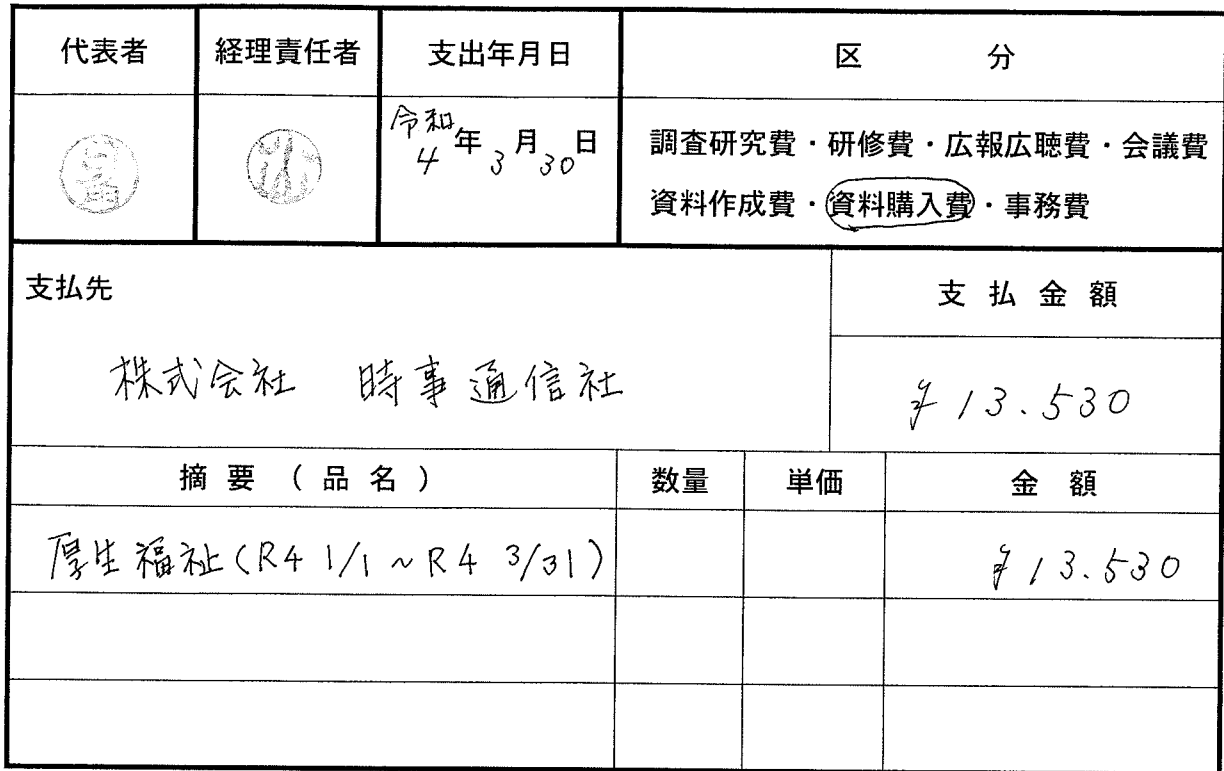 代表者 経理責任者 支出年月日 区 分
令和4年3月30日
調査研究費・研修費・広報広聴費・会議費
資料作成費・資料購入費・事務費
支払先 支払金額
株式会社 時事通信社 ¥13.530
摘要(品名) 数量 単価 金額
厚生福祉(R4 1/1~R4 3/31) ¥13.530